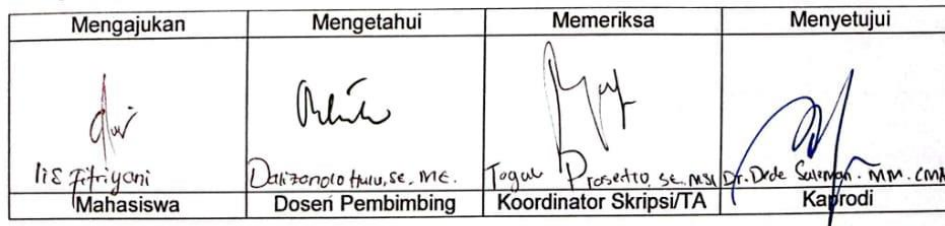 Mengajukan Mengetahui Memeriksa Menyetujui
Iis Fitriyani Dalizanolo Hulu, SE, ME. Togar Prasetio, SE. MSi Dr. Dede Suleman. MM. CMA
Mahasiswa Dosen Pembimbing Koordinator Skripsi/TA Kaprodi